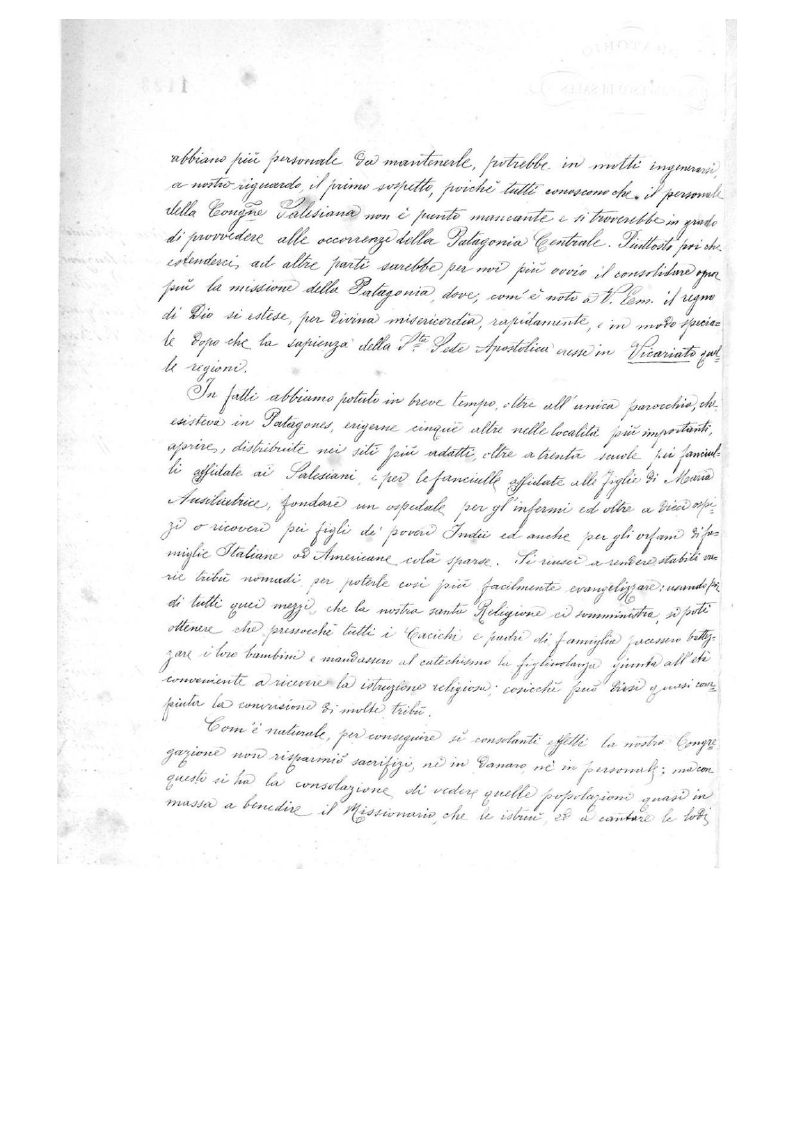 abbiano più personale da mantenerle, potrebbe in molti ingenerarsi,
a nostro riguardo, il primo sospetto, poichè tutti conoscono che il personale
della Congne Salesiana non è punto mancante e si troverebbe in grado
di provvedere alle occorrenze della Patagonia Centrale. Piuttosto poi che
estenderci, ad altre parti sarebbe per noi più ovvio il consolidare ognor
più la missione della Patagonia, dove, com'è noto a V. Em. il regno
di Dio si estese, per divina misericordia, rapidamente, e in modo specia=
le dopo che la sapienza della Sta Sede Apostolica eresse in Vicariato quel=
le regioni.
In fatti abbiamo potuto in breve tempo, oltre all'unica parocchia, che
esisteva in Patagones, erigerne cinque altre nelle località più importanti,
aprire, distribuite nei siti più adatti, oltre a trenta scuole pei fanciul=
li affidate ai Salesiani, e per le fanciulle affidate alle Figlie di Maria
Ausiliatrice, fondare un ospedale per gl'infermi ed oltre a dieci ospi=
zi o ricoveri pei figli de' poveri Indii ed anche per gli orfani di fa=
miglie Italiane od Americane colà sparse. Si riuscì a rendere stabili va=
rie tribù nomadi, per poterle così più facilmente evangelizzare: usando poi
di tutti quei mezzi, che la nostra santa Religione ci somministra, si potè
ottenere che pressochè tutti i Cacichi e padri di famiglia facessero battez=
zare i loro bambini e mandassero al catechismo la figliuolanza giunta all'età
conveniente a ricevere la istruzione religiosa; cosicchè può dirsi quasi com=
piuta la conversione di molte tribù.
Com'è naturale, per conseguire sì consolanti effetti la nostra Congre=
gazione non risparmiò sacrifizi, nè in danaro nè in personale; ma con
questi si ha la consolazione di vedere quelle popolazioni quasi in
massa a benedire il Missionario, che le istruì, ed a cantare le lodi